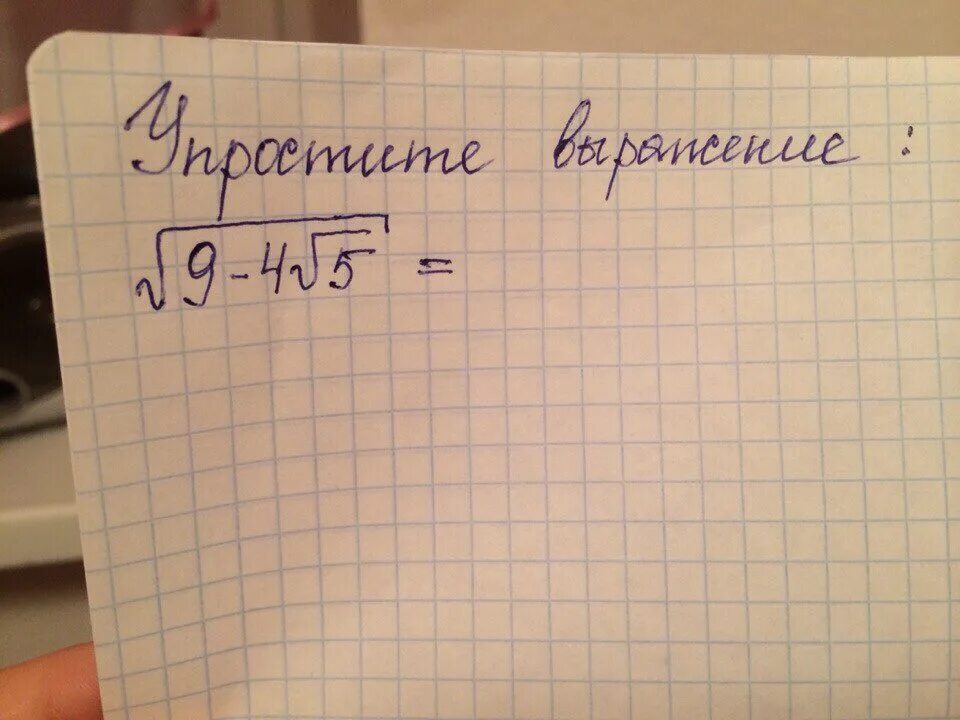 Упростите выражение :
√9-4√5 =